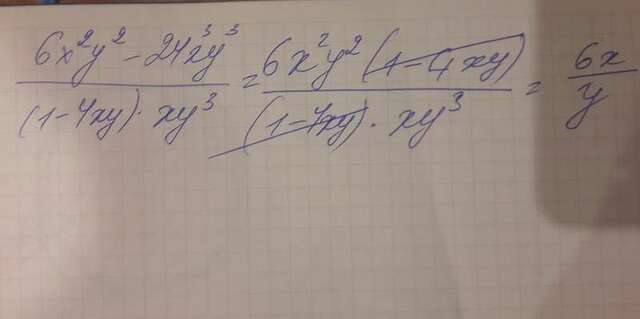 (6x²y² - 24x³y³)/((1-4xy)·xy³) = (6x²y²(1-4xy))/((1-4xy)·xy³) = 6x/y